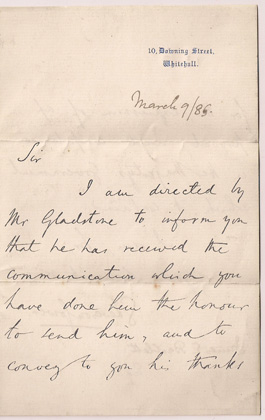 10, Downing Street,
Whitehall.
March 9/85.
Sir
I am directed by
Mr Gladstone to inform you
that he has received the
communication which you
have done him the honour
to send him, and to
convey to you his thanks